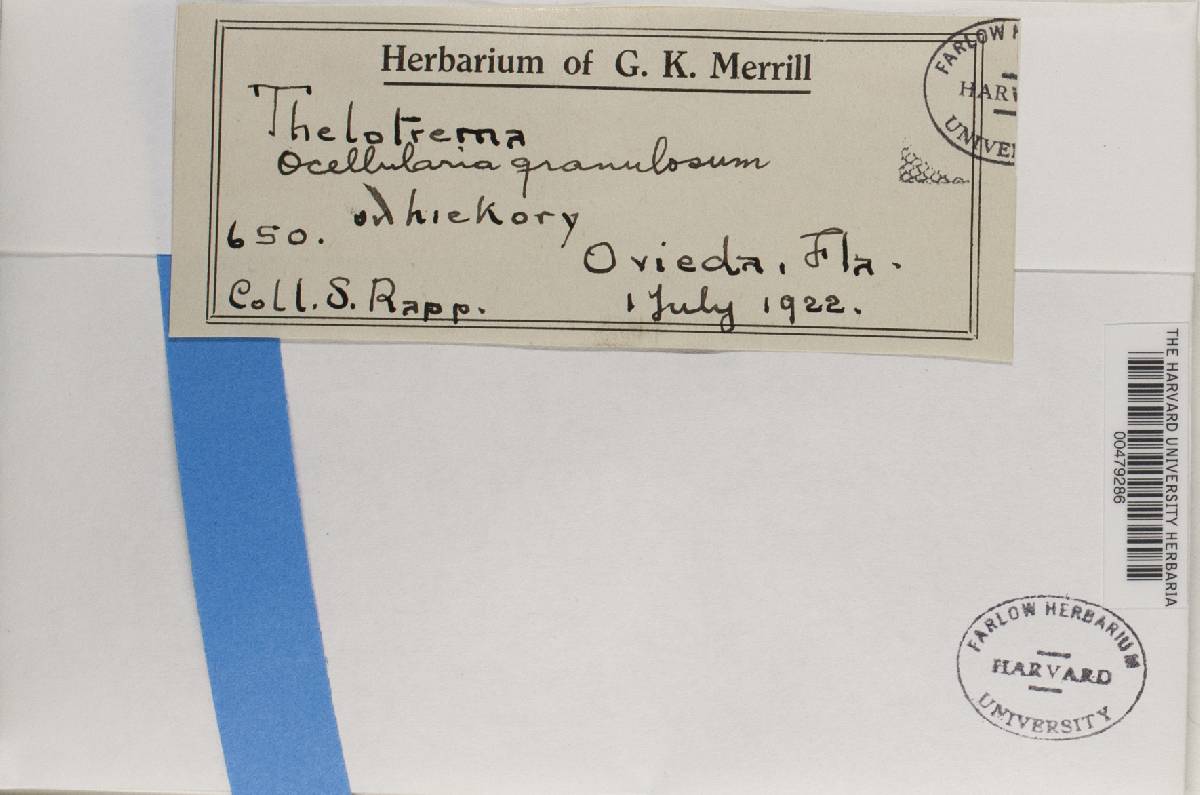 Herbarium of G. K. Merrill
Thelotrema
Ocellularia granulosum
on hickory
650.
Ovieda, Fla.
Coll. S. Rapp.
1 July 1922.
FARLOW H
HARV
UNIVE
THE HARVARD UNIVERSITY HERBARIA
00479286
FARLOW HERBARIUM
HARVARD
UNIVERSITY